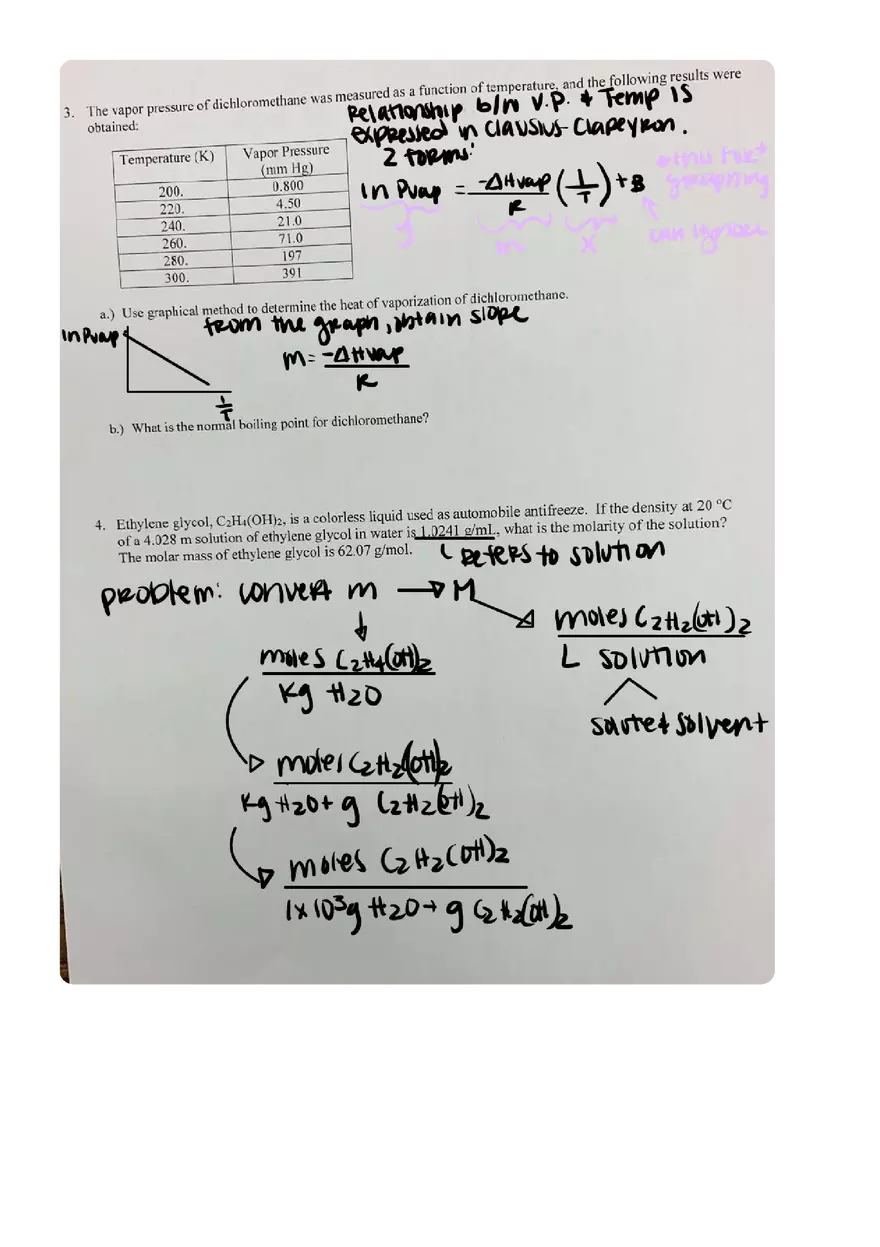 3. The vapor pressure of dichloromethane was measured as a function of temperature, and the following results were
obtained:
Relationship b/n V.P. & Temp is
expressed in Clausius-Clapeyron.
2 forms:
Temperature (K) Vapor Pressure (mm Hg)
200. 0.800
220. 4.50
240. 21.0
260. 71.0
280. 197
300. 391
ln Pvap = -ΔHvap/R (1/T) + B
y m x
graphing
can ignore
a.) Use graphical method to determine the heat of vaporization of dichloromethane.
from the graph, obtain slope
ln Pvap
m = -ΔHvap/R
1/T
b.) What is the normal boiling point for dichloromethane?
4. Ethylene glycol, C₂H₄(OH)₂, is a colorless liquid used as automobile antifreeze. If the density at 20 °C
of a 4.028 m solution of ethylene glycol in water is 1.0241 g/mL, what is the molarity of the solution?
The molar mass of ethylene glycol is 62.07 g/mol.
refers to solution
problem: convert m → M
moles C2H2(OH)2
L solution
solute & solvent
moles C2H4(OH)2
Kg H2O
moles C2H2(OH)2
Kg H2O + g C2H2(OH)2
moles C2H2(OH)2
1x10³g H2O + g C2H2(OH)2